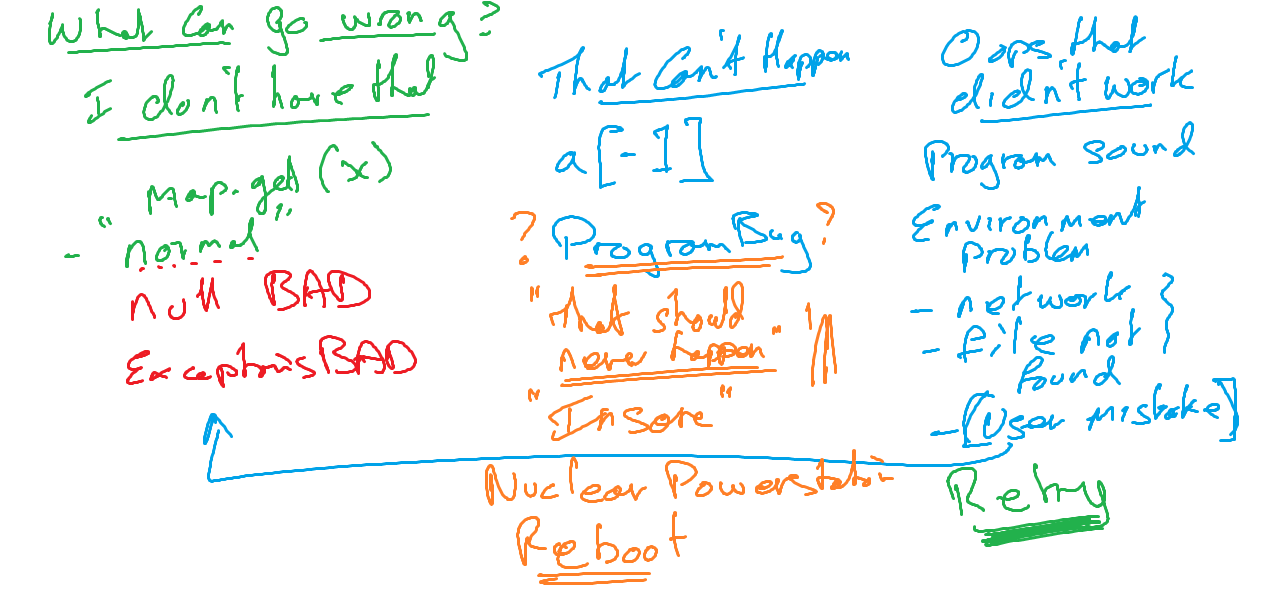 What Can go wrong?
I don't have that
Map.get(x)
- "normal"
null BAD
Exceptions BAD
That Can't Happen
a[-1]
? Program Bug ?
"that should
never happen"
"Insane"
Nuclear Powerstation
Reboot
Oops that
didn't work
Program sound
Environment
problem
- network }
- file not
found
- [User Mistake]
Retry